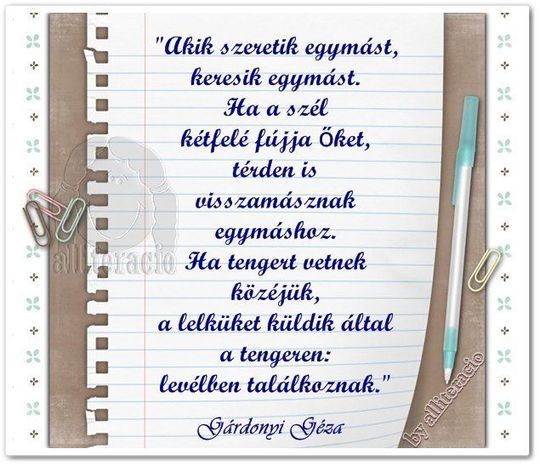 "Akik szeretik egymást,
keresik egymást.
Ha a szél
kétfelé fújja Őket,
térden is
visszamásznak
egymáshoz.
Ha tengert vetnek
közéjük,
a lelküket küldik által
a tengeren:
levélben találkoznak."
Gárdonyi Géza
alliteracio
by alliteracio